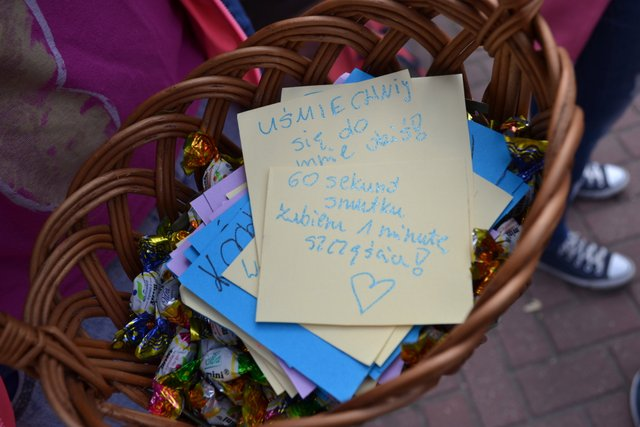 UŚMIECHNIJ
się do
mnie dziś!
60 sekund
smutku
zabiera 1 minutę
szczęścia!